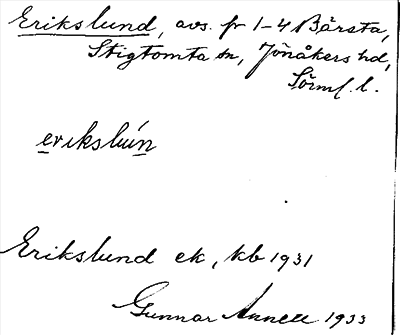 Erikslund, avs. fr 1-4 Bärsta,
Stigtomta sn, Jönåkers hd,
Sörml. l.
erikslún
Erikslund ek, kb 1931
Gunnar Annell 1933